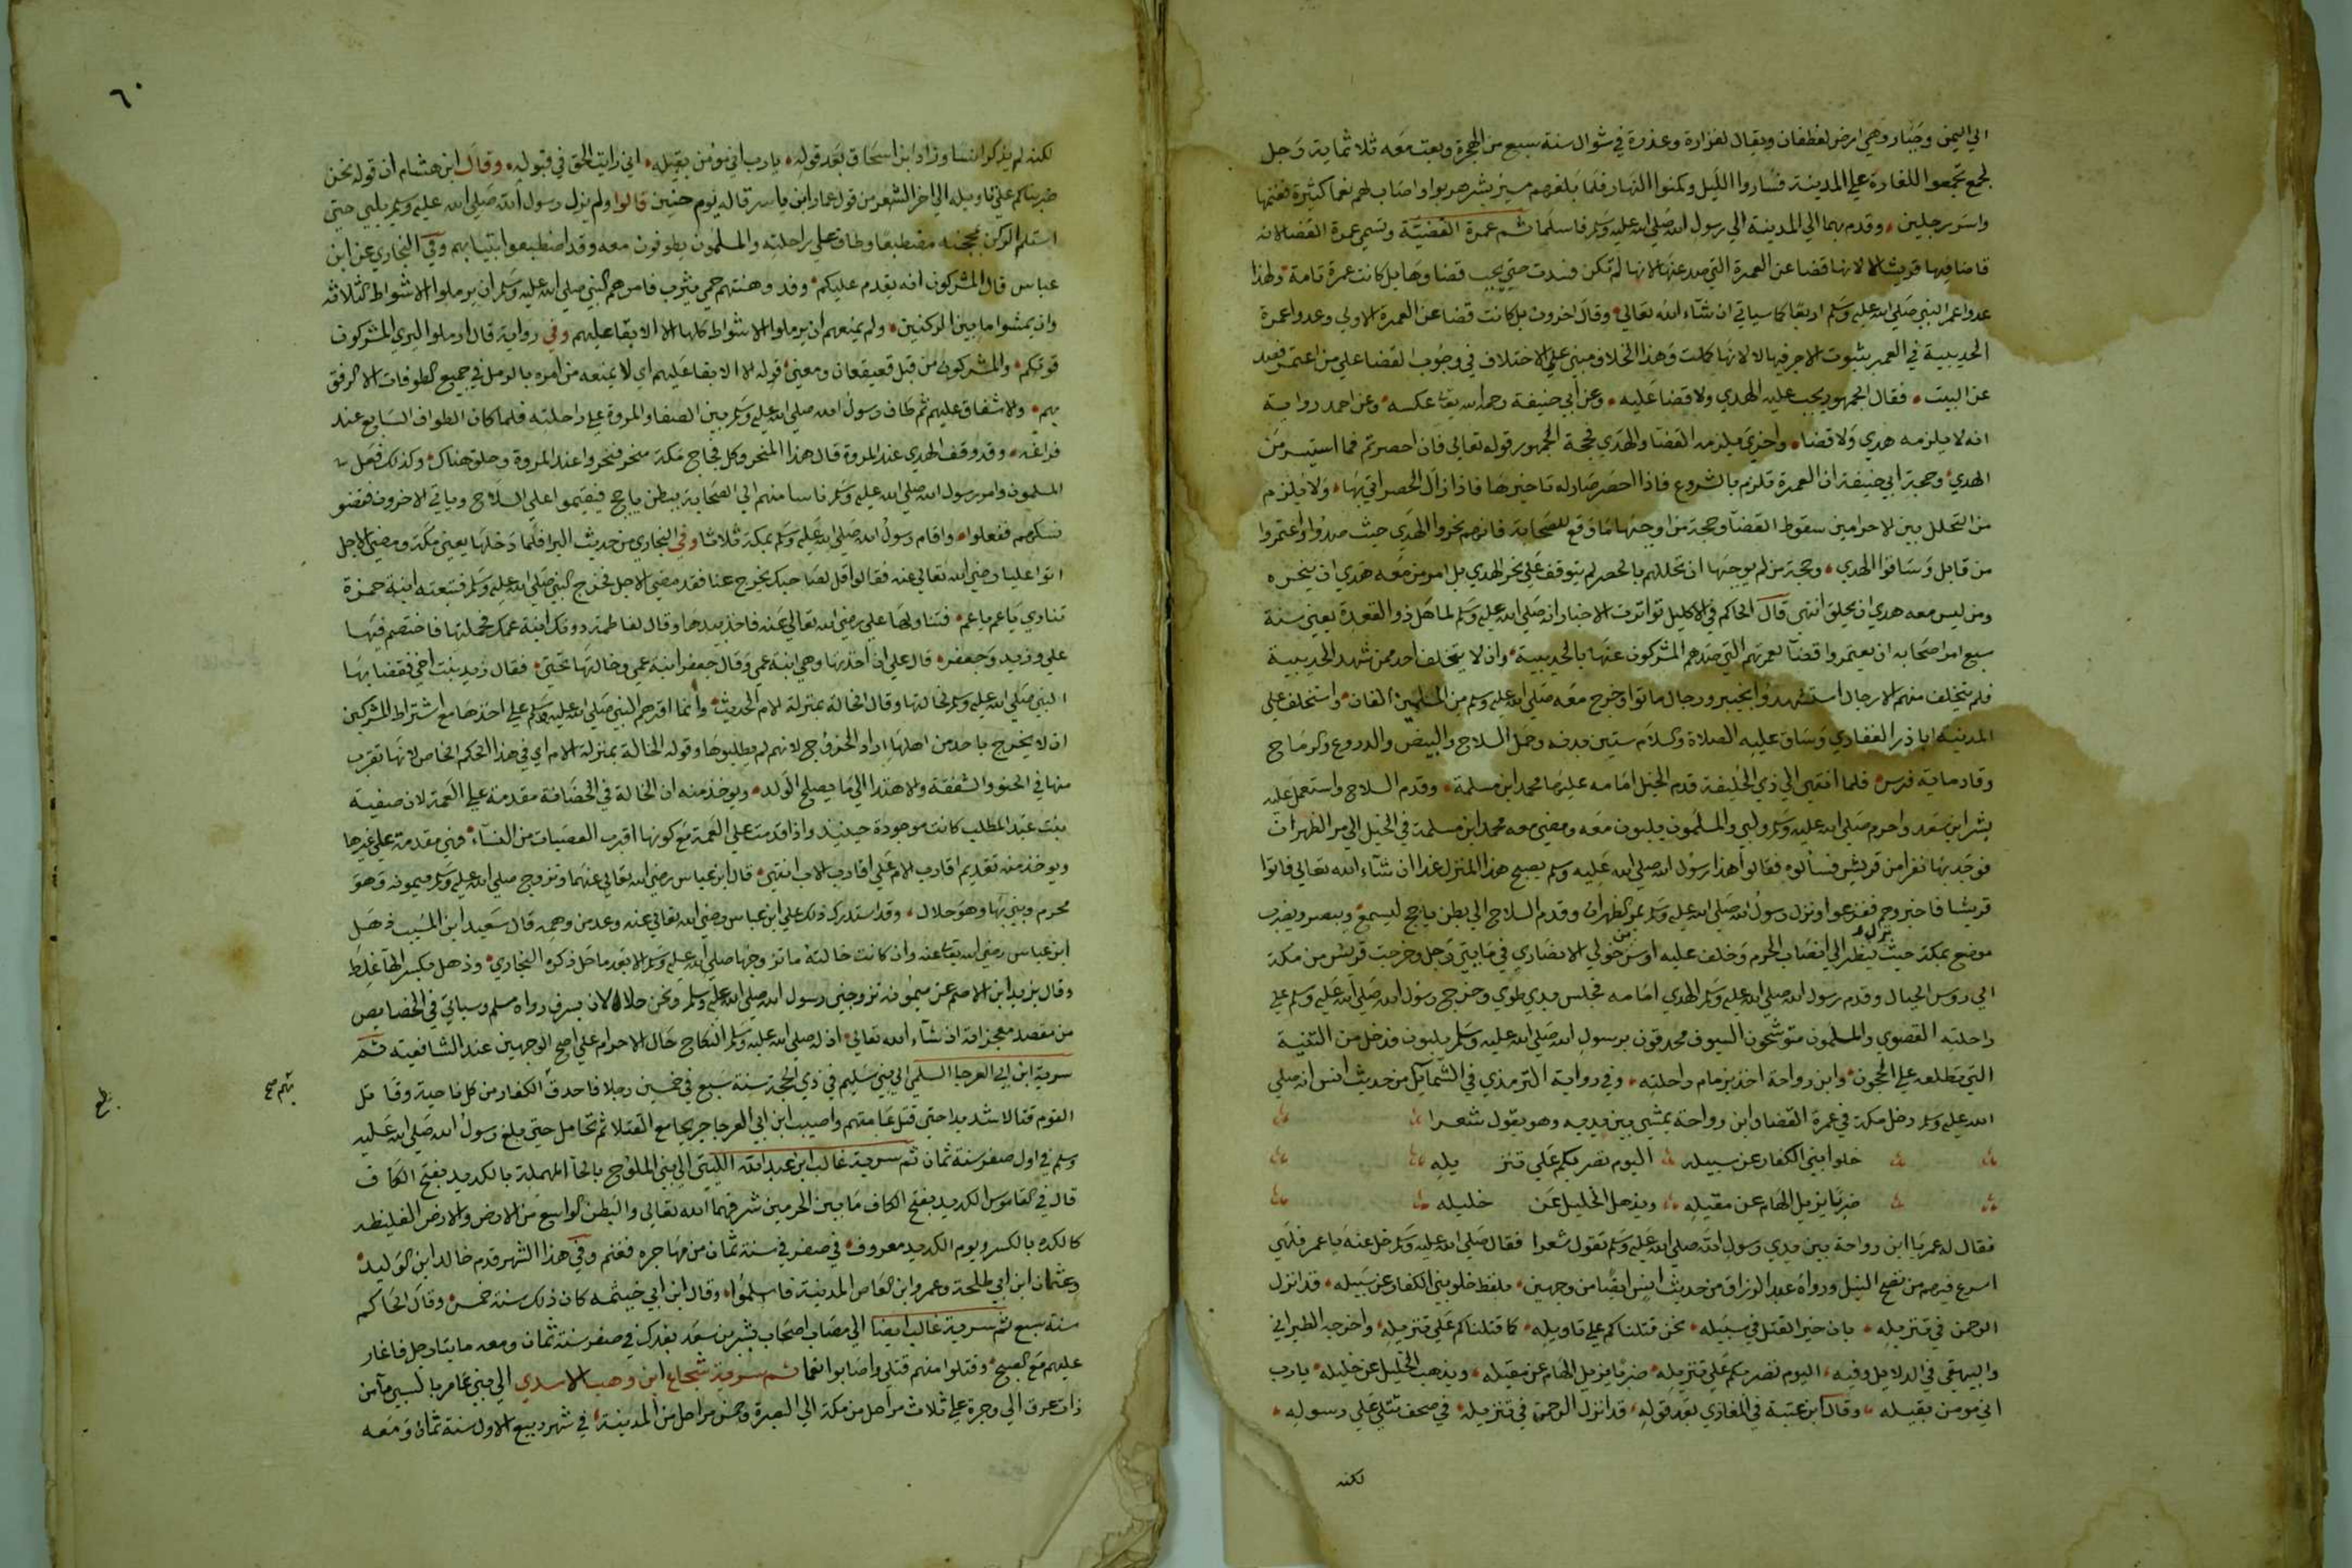 الي اليمن وجبار وهي ارض لغطفان ويقال لفزارة وعذرة في شوال سنة سبع من الهجرة وبعث معه ثلاثماية رجل
لجمع تجمعوا للغارة علي المدينة فساروا الليل وكمنوا النهار فلما بلغهم مسير بشير هربوا واصاب لهم نعما كثيرة فغنمها
واسر رجلين وقدم بهما الي المدينة الي رسول الله صلي الله عليه وسلم فاسلما ثم عمرة القضية وتسمي عمرة القضا لانه
قاضا فيها قريشا لا لانها قضا عن العمرة التي صد عنها لانها لم تكن فسدت حتي يجب قضاوها بل كانت عمرة تامة ولهذا
عدوا عمر النبي صلي الله عليه وسلم اربعا كما سياتي ان شاء الله تعالي وقال اخرون بل كانت قضا عن العمرة الاولي وعدوا عمرة
الحديبية في العمر بثبوت الاجر فيها لا لانها كملت وهذا الخلاف مبني علي الاختلاف في وجوب القضا علي من اعتمر فصد
عن البيت فقال الجمهور يجب عليه الهدي ولا قضا عليه وعن أبي حنيفة رحمه الله تعا عكسه وعن احمد رواية
انه لا يلزمه هدي ولا قضا واخري يلزمه القضا والهدي فحجة الجمهور قوله تعالي فان احصرتم فما استيسر من
الهدي وحجة ابي حنيفة ان العمرة تلزم بالشروع فاذا احصر جاز له تاخيرها فاذا زال الحصر اتي بها ولا يلزم
من التحلل بين الاحرامين سقوط القضا وحجة من اوجبها ما وقع للصحابة فانهم نحروا الهدي حيث صدوا واعتمروا
من قابل وساقوا الهدي وحجة من لم يوجبها ان تحللهم بالحصر لم يتوقف علي نحر الهدي بل امر من معه هدي ان ينحره
ومن ليس معه هدي ان يحلق انتهي قال الحاكم في الاكليل تواترت الاخبار انه صلي الله عليه وسلم لما هل ذو القعدة يعني سنة
سبع امر اصحابه ان يعتمروا قضا لعمرتهم التي صدهم المشركون عنها بالحديبية وان لا يتخلف احد ممن شهد الحديبية
فلم يتخلف منهم الا رجال استشهدوا بخيبر ورجال ماتوا وخرج معه صلي الله عليه وسلم من المسلمين الفان واستخلف علي
المدينة اباذر الغفاري وساق عليه الصلاة والسلام ستين بدنه وحمل السلاح والبيض والدروع والرماح
وقاد ماية فرس فلما انتهي الي ذي الحليفة قدم الخيل امامه عليها محمد ابن مسلمة وقدم السلاح واستعمل عليه
بشر ابن سعد واحرم صلي الله عليه وسلم ولبي والمسلمون يلبون معه ومضي معه محمد ابن مسلمة في الخيل الي مر الظهران
فوجد بها نفرا من قريش فسالوه فقالوا هذا رسول الله صلي الله عليه وسلم يصبح هذا المنزل غدا ان شاء الله تعالي فاتوا
قريشا فاخبروهم ففزعوا ونزل رسول الله صلي الله عليه وسلم بمر الظهران وقدم السلاح الي بطن ياجج ليسمع ويبصر ويضرب
موضع بمكة حيث ينظر الي انصاب الحرم وخلف عليه اوس بن خولي الانصاري في مايتي رجل وخرجت قريش من مكة
الي روس الجبال وقدم رسول الله صلي الله عليه وسلم الهدي امامه فحبس بذي طوي وخرج رسول الله صلي الله عليه وسلم علي
راحلته القصوي والمسلمون متوشحون السيوف محدقون برسول الله صلي الله عليه وسلم يلبون فدخل من الثنية
التي تطلعه علي الحجون وابن رواحة اخذ بزمام راحلته وفي رواية الترمذي في الشمايل من حديث انس انه صلي
الله عليه وسلم دخل مكة في عمرة القضا وابن رواحة يمشي بين يديه وهو يقول شعرا
خلوا بني الكفار عن سبيله اليوم نضربكم علي تنزيله
ضربا يزيل الهام عن مقيله ويذهل الخليل عن خليله
فقال له عمر يا ابن رواحة بين يدي رسول الله صلي الله عليه وسلم تقول شعرا فقال صلي الله عليه وسلم خل عنه يا عمر فلهي
اسرع فيهم من نضح النبل ورواه عبد الرزاق من حديث انس ايضا من وجهين بلفظ خلو بني الكفار عن سبيله قد انزل
الرحمن في تنزيله بان خير القتل في سبيله نحن قتلناكم علي تاويله كما قتلناكم علي تنزيله واخرجه الطبراني
والبيهقي في الدلايل وفيه اليوم نضربكم علي تنزيله ضربا يزيل الهام عن مقيله ويذهب الخليل عن خليله يارب
اني مومن بقيله وقال ابن عتبة في المغازي بعد قوله قد انزل الرحمن في تنزيله في صحف تتلي علي رسوله
لكنه
٦٠
لكنه لم يذكر انسا وزاد ابن اسحاق بعد قوله يارب اني مومن بقيله اني رايت الحق في قبوله وقال ابن هشام ان قوله نحن
ضربناكم علي تاويله الي اخر الشعر من قول عمار ابن ياسر قاله يوم حنين قالوا ولم يزل رسول الله صلي الله عليه وسلم يلبي حتي
استلم الركن بمحجنه مضطبعا وطاف علي راحلته والمسلمون يطوفون معه وقد اضطبعوا بثيابهم وفي البخاري عن ابن
عباس قال المشركون انه يقدم عليكم وفد وهنتهم حمي يثرب فامرهم النبي صلي الله عليه وسلم ان يرملوا الاشواط الثلاثة
وان يمشوا ما بين الركنين ولم يمنعهم ان يرملوا الاشواط كلها الا الابقا عليهم وفي رواية قال ارملوا ليري المشركون
قوتكم والمشركون من قبل قعيقعان ومعني قوله الا الابقا عليهم اي لا يمنعه من امره بالرمل في جميع الطوفات الا الرفق
بهم والاشفاق عليهم ثم طاف رسول الله صلي الله عليه وسلم بين الصفا والمروة علي راحلته فلما كان الطواف السابع عند
فراغه وقد وقف الهدي عند المروة قال هذا المنحر وكل فجاج مكة منحر فنحروا عند المروة وحلق هناك وكذلك فعل
المسلمون وامر رسول الله صلي الله عليه وسلم ناسا منهم الي الصحابة ببطن ياجج فيقيموا علي السلاح وياتي الاخرون فقضو
نسكهم ففعلوا واقام رسول الله صلي الله عليه وسلم بمكة ثلاثا وفي البخاري من حديث البرا فلما دخلها يعني مكة ومضي الاجل
اتوا عليا رضي الله تعالي عنه فقالوا قل لصاحبك يخرج عنا فقد مضي الاجل فخرج النبي صلي الله عليه وسلم فتبعته ابنة حمزة
تنادي يا عم يا عم فتناولها علي رضي الله تعالي عنه فاخذ بيدها وقال لفاطمة دونك ابنة عمك فحملتها فاختصم فيها
علي وزيد وجعفر قال علي انا اخذتها وهي ابنة عمي وقال جعفر ابنة عمي وخالتها تحتي فقال زيد بنت أخي فقضا بها
النبي صلي الله عليه وسلم لخالتها وقال الخالة بمنزلة الام الحديث وانما اقرهم النبي صلي الله عليه وسلم علي اخذها مع اشتراط المشركين
ان لا يخرج باحد من اهلها اراد الخروج لانهم لم يطلبوها وقوله الخالة بمنزلة الام اي في هذا الحكم الخاص لانها تقرب
منها في الحنو والشفقة والاهتدا الي ما يصلح الولد ويوخذ منه ان الخالة في الحضانة مقدمة علي العمة لان صفية
بنت عبد المطلب كانت موجودة حينيذ واذا قدمت علي العمة مع كونها اقرب العصبات من النساء فهي مقدمة علي غيرها
ويوخذ منه تقديم اقارب الام علي اقارب الاب انتهي قال ابن عباس رضي الله تعالي عنهما وتزوج صلي الله عليه وسلم ميمونة وهو
محرم وبني بها وهو حلال وقد استدرك ذلك علي ابن عباس رضي الله تعالي عنه وعد من وهمه قال سعيد ابن المسيب ذهل
ابن عباس رضي الله تعا عنه وان كانت خالته ما تزوجها صلي الله عليه وسلم الا بعد ما حل ذكره البخاري وذهل بكسر الها غلط
وقال يزيد ابن الاصم عن ميمونة تزوجني رسول الله صلي الله عليه وسلم ونحن حلالان بسرف رواه مسلم وسياتي في الخصايص
من مقصد معجزاته ان شاء الله تعالي ان له صلي الله عليه وسلم النكاح حال الاحرام علي اصح الوجهين عند الشافعية ثم
سرية ابن ابي العوجا السلمي الي بني سليم في ذي الحجة سنة سبع في خمسين رجلا فاحدق الكفار من كل ناحية وقاتل
القوم قتالا شديدا حتي قتل عامتهم واصيب ابن ابي العوجا جريحا مع القتلا ثم تحامل حتي بلغ رسول الله صلي الله عليه
وسلم في اول صفر سنة ثمان ثم سرية غالب ابن عبد الله الليثي الي بني الملوح بالحا المهملة بالكديد بفتح الكاف
قال في القاموس الكديد بفتح الكاف ما بين الحرمين شرفهما الله تعالي والبطن الواسع من الارض والارض الغليظه
كالكده بالكسر ويوم الكديد معروف في صفر في سنة ثمان من مهاجره فغنم وفي هذا الشهر قدم خالد ابن الوليد
وعثمان ابن ابي طلحة وعمرو ابن العاص المدينة فاسلموا وقال ابن ابي خيثمه كان ذلك سنة خمس وقال الحاكم
سنة سبع ثم سرية غالب ايضا الي مصاب اصحاب بشير بن سعد بفدك في صفر سنة ثمان ومعه مايتا رجل فاغار
عليهم مع الصبح وقتلوا منهم قتلي واصابوا نعما ثم سرية شجاع ابن وهب الاسدي الي بني عامر بالسيي ما من
ذات عرق الي وجرة علي ثلاث مراحل من مكة الي البصرة وخمس مراحل من المدينة في شهر ربيع الاول سنة ثمان ومعه